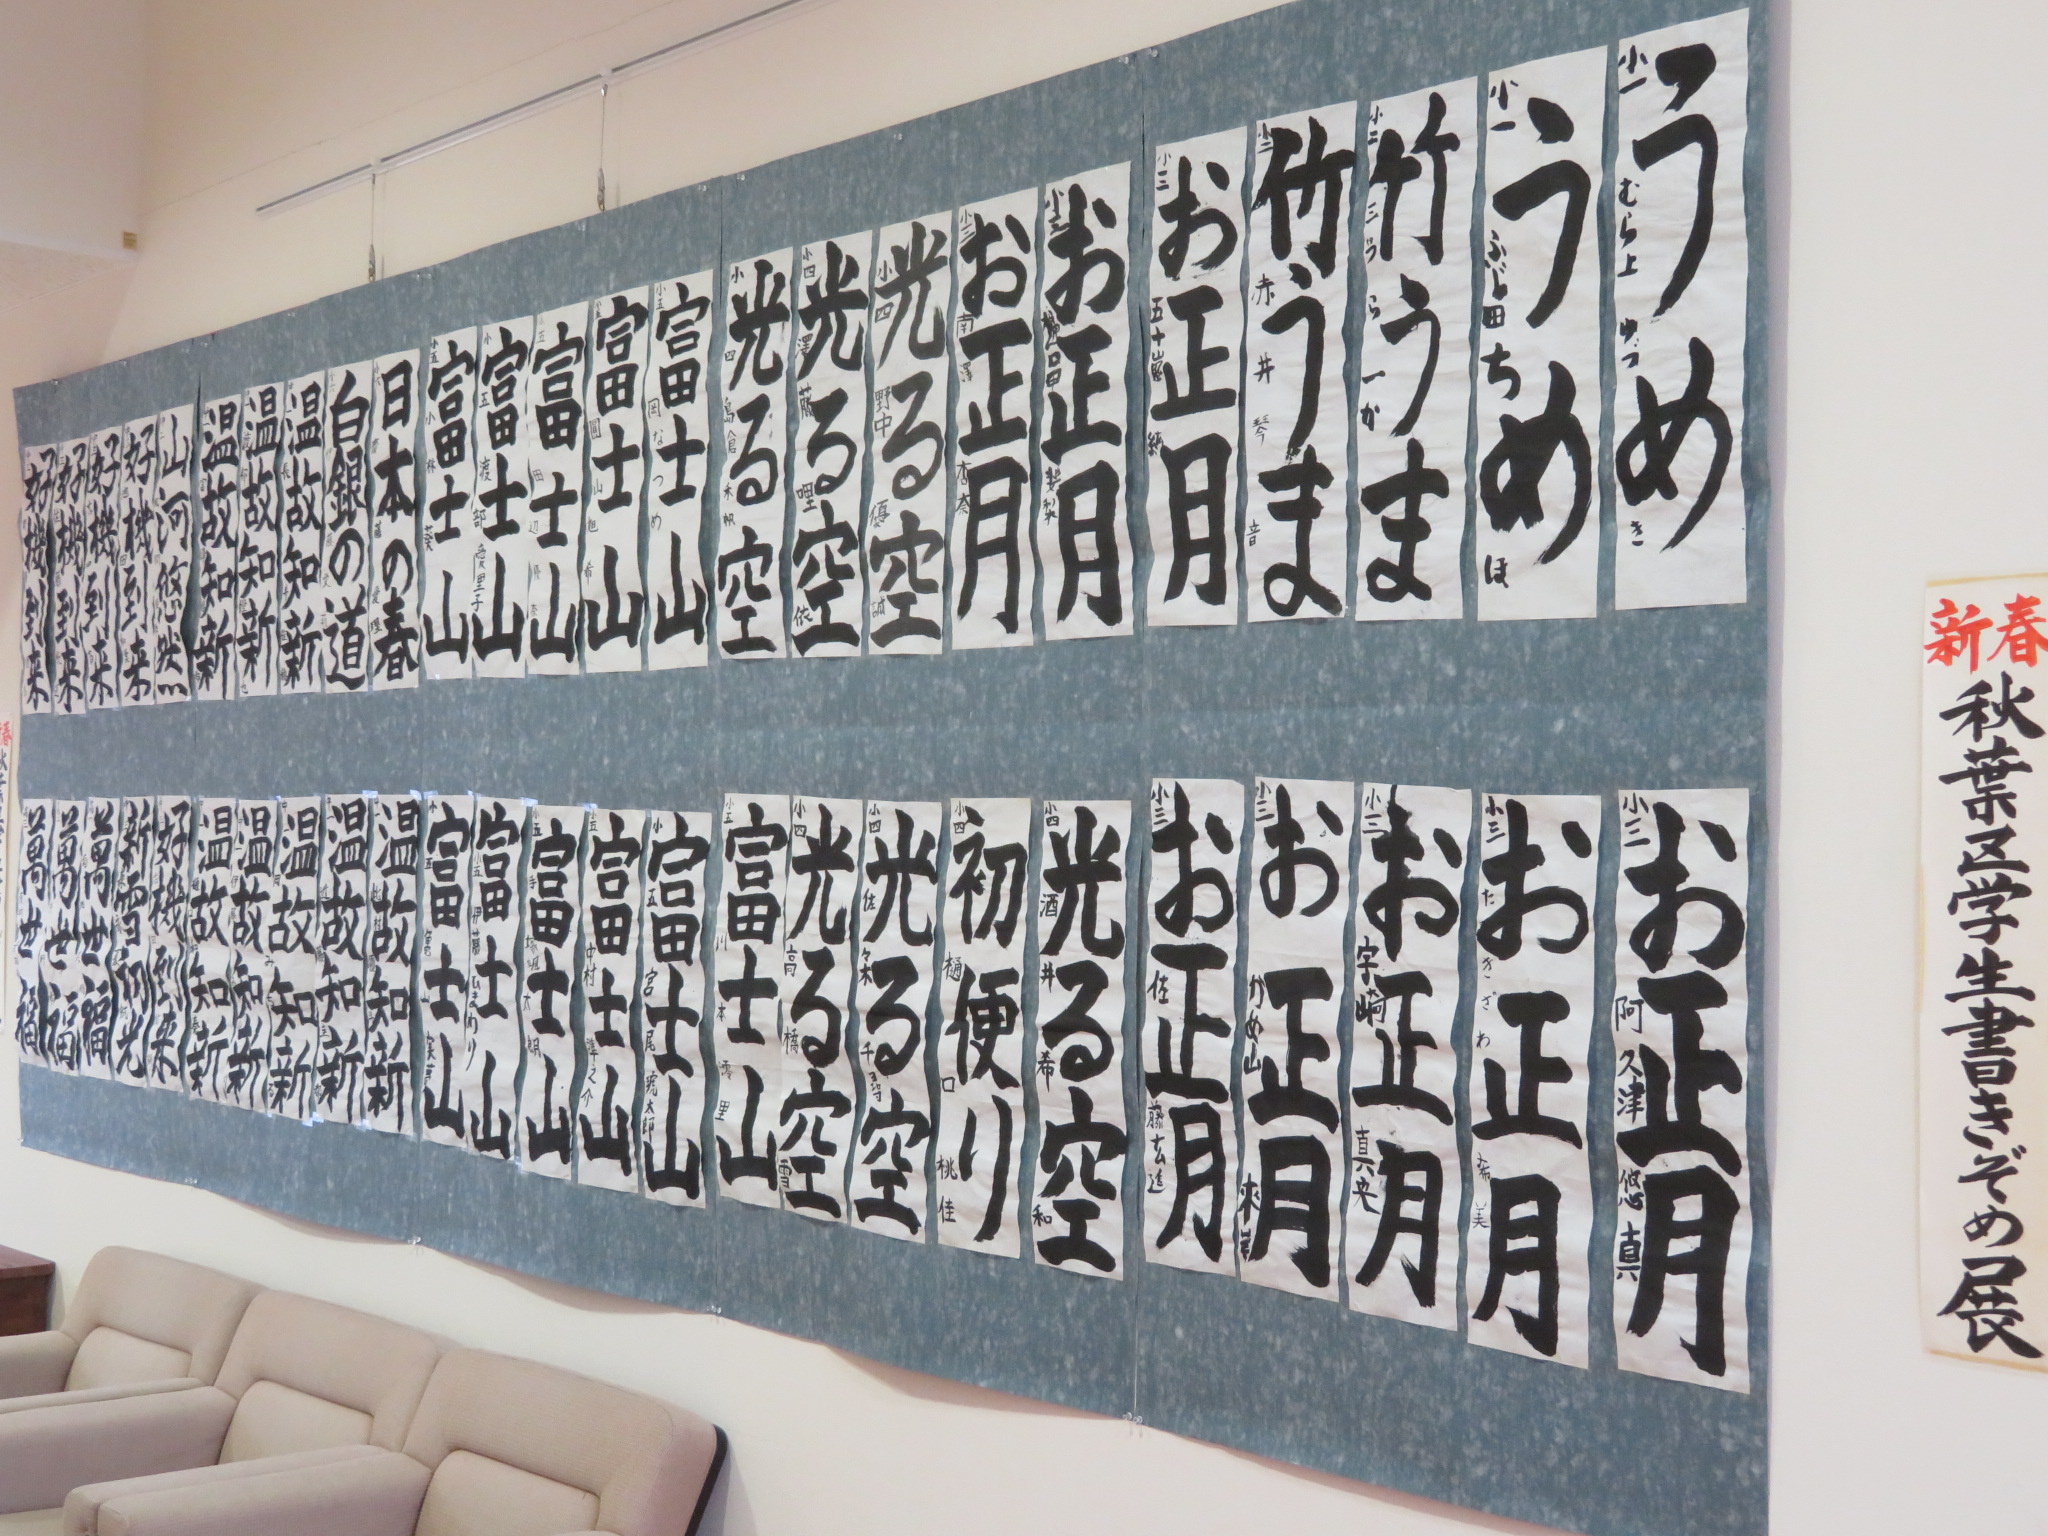 新春
秋葉区学生書きぞめ展
うめ
小一 むら上 ゆづき
うめ
小一 ふじ田 ちほ
竹うま
小二
竹うま
小二 赤井 琴音
お正月
小三 五十嵐
お正月
小三
お正月
小三 南澤 杏奈
光る空
小四 野中 優誠
光る空
小四
光る空
小四 島倉
富士山
小五 岡 なつめ
富士山
富士山
富士山
小五 渡部 愛里子
富士山
小五 小林 葵
日本の春
白銀の道
温故知新
温故知新
温故知新
山河悠然
好機到来
好機到来
好機到来
好機到来
お正月
小三 阿久津 悠真
お正月
小三 たきざわ 希美
お正月
小三 宇崎 真央
お正月
小三 かめ山
お正月
小三 佐藤 玄進
光る空
小四 酒井 希和
初便り
小四 樋口 桃佳
光る空
小四 佐々木
光る空
小四 高橋 雪
富士山
小五 川本 澪里
富士山
小五 宮尾 琥太郎
富士山
小五 中村 準之介
富士山
小五
富士山
小五 伊藤 ひまり
富士山
小五 亀山
温故知新
温故知新
温故知新
温故知新
温故知新
好機到来
新雪初光
萬世福
萬世福
萬世福